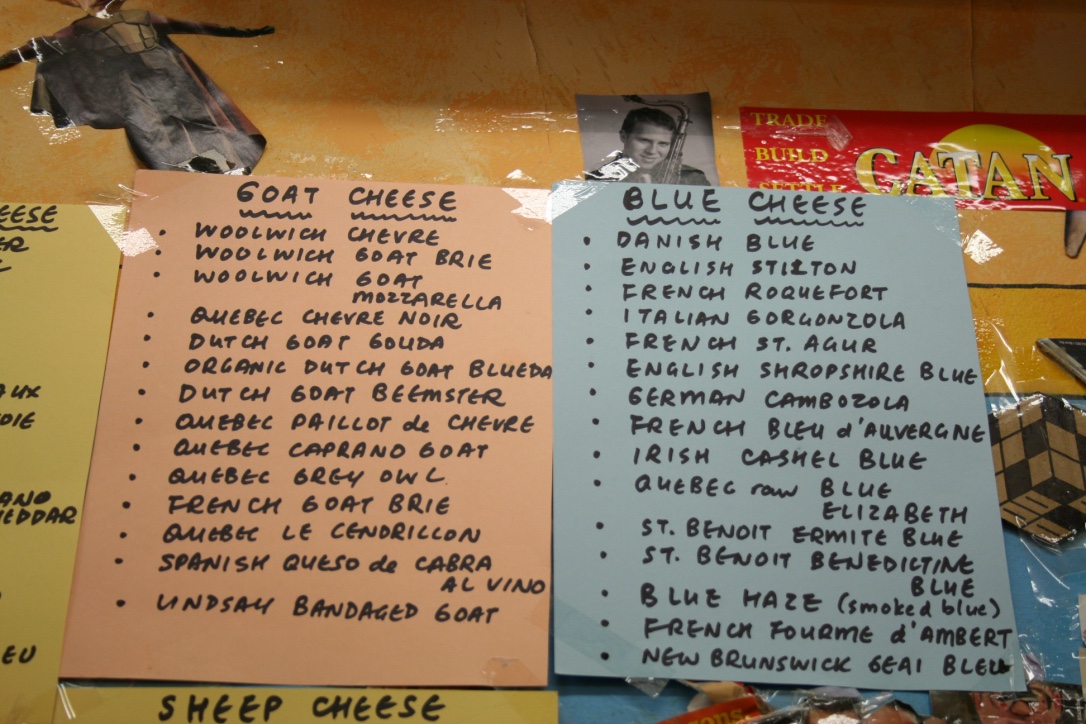 EESE
ER
AUX
DIE
ANO
HEDDAR
EU
GOAT CHEESE
• WOOLWICH CHEVRE
• WOOLWICH GOAT BRIE
• WOOLWICH GOAT
MOZZARELLA
• QUEBEC CHEVRE NOIR
• DUTCH GOAT GOUDA
• ORGANIC DUTCH GOAT BLUEDA
• DUTCH GOAT BEEMSTER
• QUEBEC PAILLOT de CHEVRE
• QUEBEC CAPRANO GOAT
• QUEBEC GREY OWL
• FRENCH GOAT BRIE
• QUEBEC LE CENDRILLON
• SPANISH QUESO de CABRA
AL VINO
• LINDSAY BANDAGED GOAT
SHEEP CHEESE
TRADE
BUILD
SETTLE
CATAN
BLUE CHEESE
• DANISH BLUE
• ENGLISH STILTON
• FRENCH ROQUEFORT
• ITALIAN GORGONZOLA
• FRENCH ST. AGUR
• ENGLISH SHROPSHIRE BLUE
• GERMAN CAMBOZOLA
• FRENCH BLEU d'AUVERGNE
• IRISH CASHEL BLUE
• QUEBEC raw BLUE
ELIZABETH
• ST. BENOIT ERMITE BLUE
• ST. BENOIT BENEDICTINE
BLUE
• BLUE HAZE (smoked blue)
• FRENCH FOURME d'AMBERT
• NEW BRUNSWICK GEAI BLEU
ons.